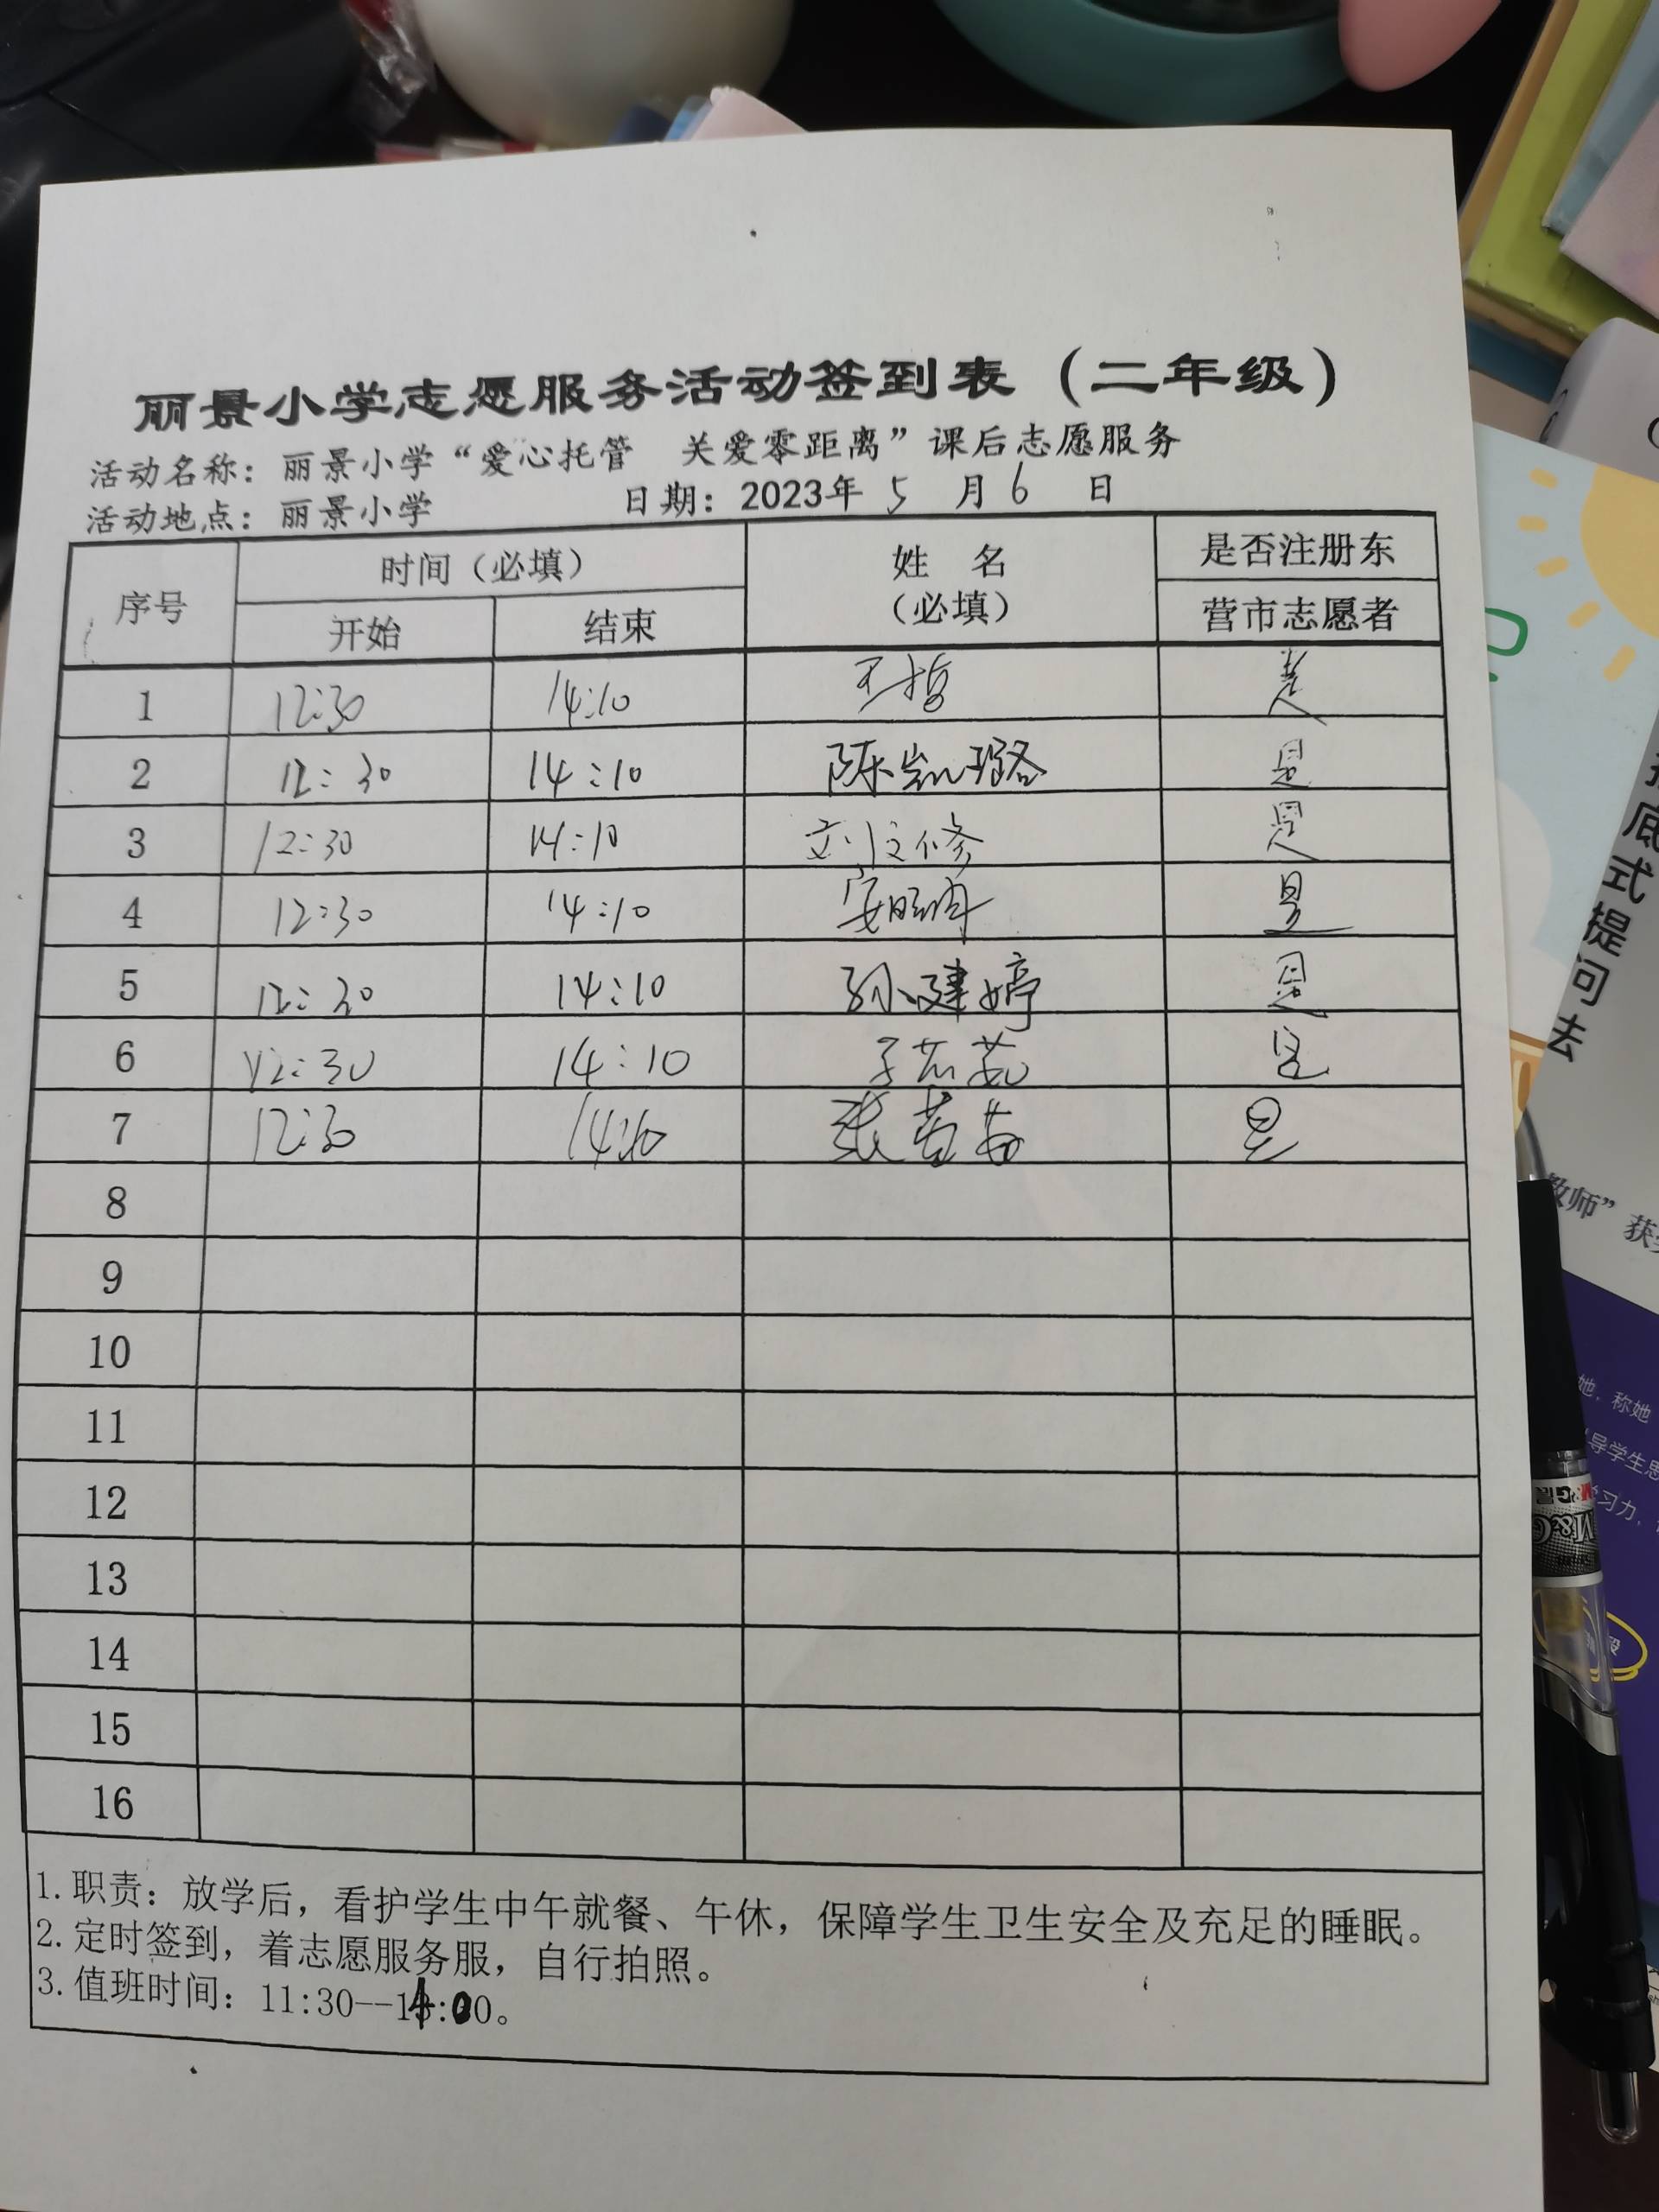 丽景小学志愿服务活动签到表（二年级）
活动名称：丽景小学“爱心托管 关爱零距离”课后志愿服务
活动地点：丽景小学 日期：2023年 5 月 6 日
序号 时间（必填） 姓 名 是否注册东
开始 结束 （必填） 营市志愿者
1 12:30 14:10 王哲 是
2 12:30 14:10 陈凯璐 是
3 12:30 14:10 是
4 12:30 14:10 是
5 12:30 14:10 孙建婷 是
6 12:30 14:10 是
7 12:30 14:10 张 是
8
9
10
11
12
13
14
15
16
1.职责：放学后，看护学生中午就餐、午休，保障学生卫生安全及充足的睡眠。
2.定时签到，着志愿服务服，自行拍照。
3.值班时间：11:30--14:00。
底
式
提
问
去
教师”获
她，称她
导学生思
习力，
M&G